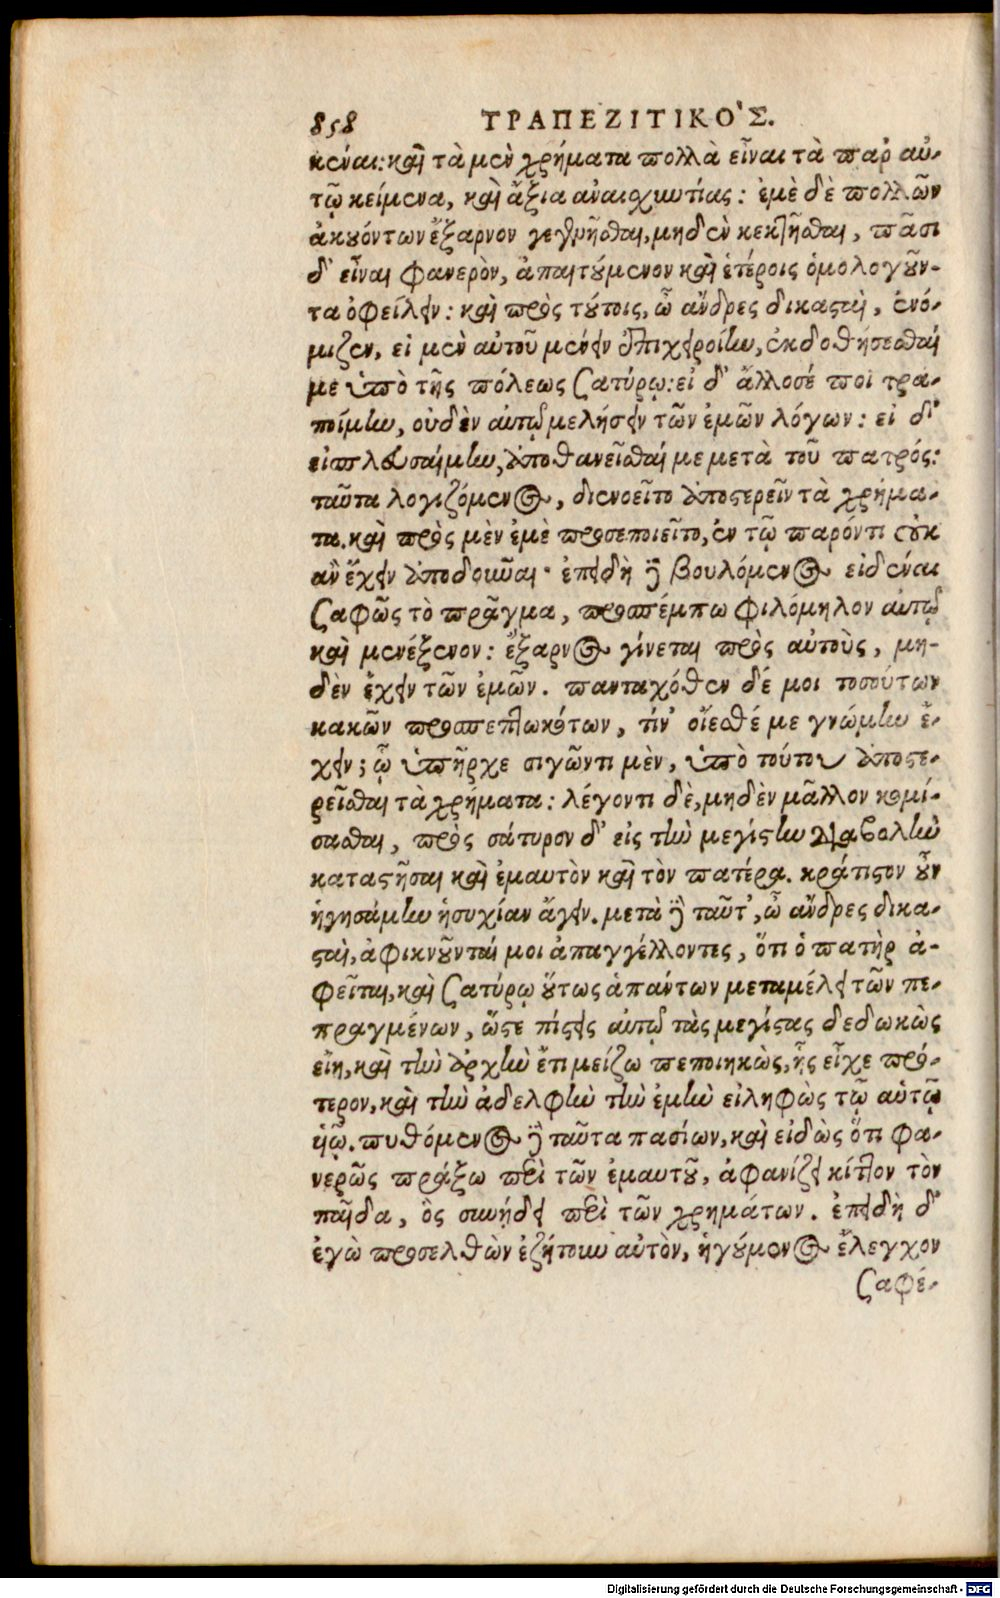 858 ΤΡΑΠΕΖΙΤΙΚΟ'Σ.
κέναι: καὶ τὰ μὲν χρήματα πολλὰ εἶναι τὰ παρ' αὐ-
τῷ κείμενα, καὶ ἄξια ἀναισχυντίας: ἐμὲ δὲ πολλῶν
ἀκουόντων ἔξαρνον γεγενῆσθαι, μηδὲν κεκτῆσθαι, πᾶσι
δ' εἶναι φανερὸν, ἀπαιτούμενον καὶ ἑτέροις ὁμολογοῦν-
τα ὀφείλειν: καὶ πρὸς τούτοις, ὦ ἄνδρες δικασταὶ, ἐνό-
μιζεν, εἰ μὲν αὐτοῦ μένειν ἐπιχειροίην, ἐκδοθήσεσθαί
με ὑπὸ τῆς πόλεως Σατύρῳ: εἰ δ' ἄλλοσέ ποι τρα-
ποίμην, οὐδὲν αὐτῷ μελήσειν τῶν ἐμῶν λόγων: εἰ δ'
εἰσπλευσαίμην, ἀποθανεῖσθαί με μετὰ τοῦ πατρός:
ταῦτα λογιζόμενος, διενοεῖτο ἀποστερεῖν τὰ χρήμα-
τα. καὶ πρὸς μὲν ἐμὲ προσεποιεῖτο, ἐν τῷ παρόντι οὐκ
ἂν ἔχειν ἀποδοῦναι· ἐπειδὴ δὲ βουλόμενος εἰδέναι
σαφῶς τὸ πρᾶγμα, προσπέμπω φιλόμηλον αὐτῷ
καὶ μενέξενον: ἔξαρνος γίνεται πρὸς αὐτοὺς, μη-
δὲν ἔχειν τῶν ἐμῶν. πανταχόθεν δέ μοι τοσούτων
κακῶν προσπεπτωκότων, τίν' οἴεσθέ με γνώμην ἔ-
χειν; ᾧ ὑπῆρχε σιγῶντι μὲν, ὑπὸ τούτου ἀποστε-
ρεῖσθαι τὰ χρήματα: λέγοντι δὲ, μηδὲν μᾶλλον κομί-
σασθαι, πρὸς σάτυρον δ' εἰς τὴν μεγίστην διαβολὴν
καταστῆσαι καὶ ἐμαυτὸν καὶ τὸν πατέρα. κράτιστον οὖν
ἡγησάμην ἡσυχίαν ἄγειν. μετὰ δὲ ταῦτ', ὦ ἄνδρες δικα-
σταὶ, ἀφικνοῦνταί μοι ἀπαγγέλλοντες, ὅτι ὁ πατὴρ ἀ-
φεῖται, καὶ Σατύρῳ οὕτως ἁπάντων μεταμέλει τῶν πε-
πραγμένων, ὥστε πίστεις αὐτῷ τὰς μεγίστας δεδωκὼς
εἴη, καὶ τὴν ἀρχὴν ἔτι μείζω πεποιηκὼς, ἧς εἶχε πρό-
τερον, καὶ τὴν ἀδελφὴν τὴν ἐμὴν εἰληφὼς τῷ αὑτῷ
ὑιῷ. πυθόμενος δὲ ταῦτα πασίων, καὶ εἰδὼς ὅτι φα-
νερῶς πράξω περὶ τῶν ἐμαυτοῦ, ἀφανίζει κίττον τὸν
παῖδα, ὃς συνῄδει περὶ τῶν χρημάτων. ἐπειδὴ δ'
ἐγὼ προσελθὼν ἐζήτουν αὐτὸν, ἡγούμενος ἔλεγχον
σαφέ-
Digitalisierung gefördert durch die Deutsche Forschungsgemeinschaft - DFG